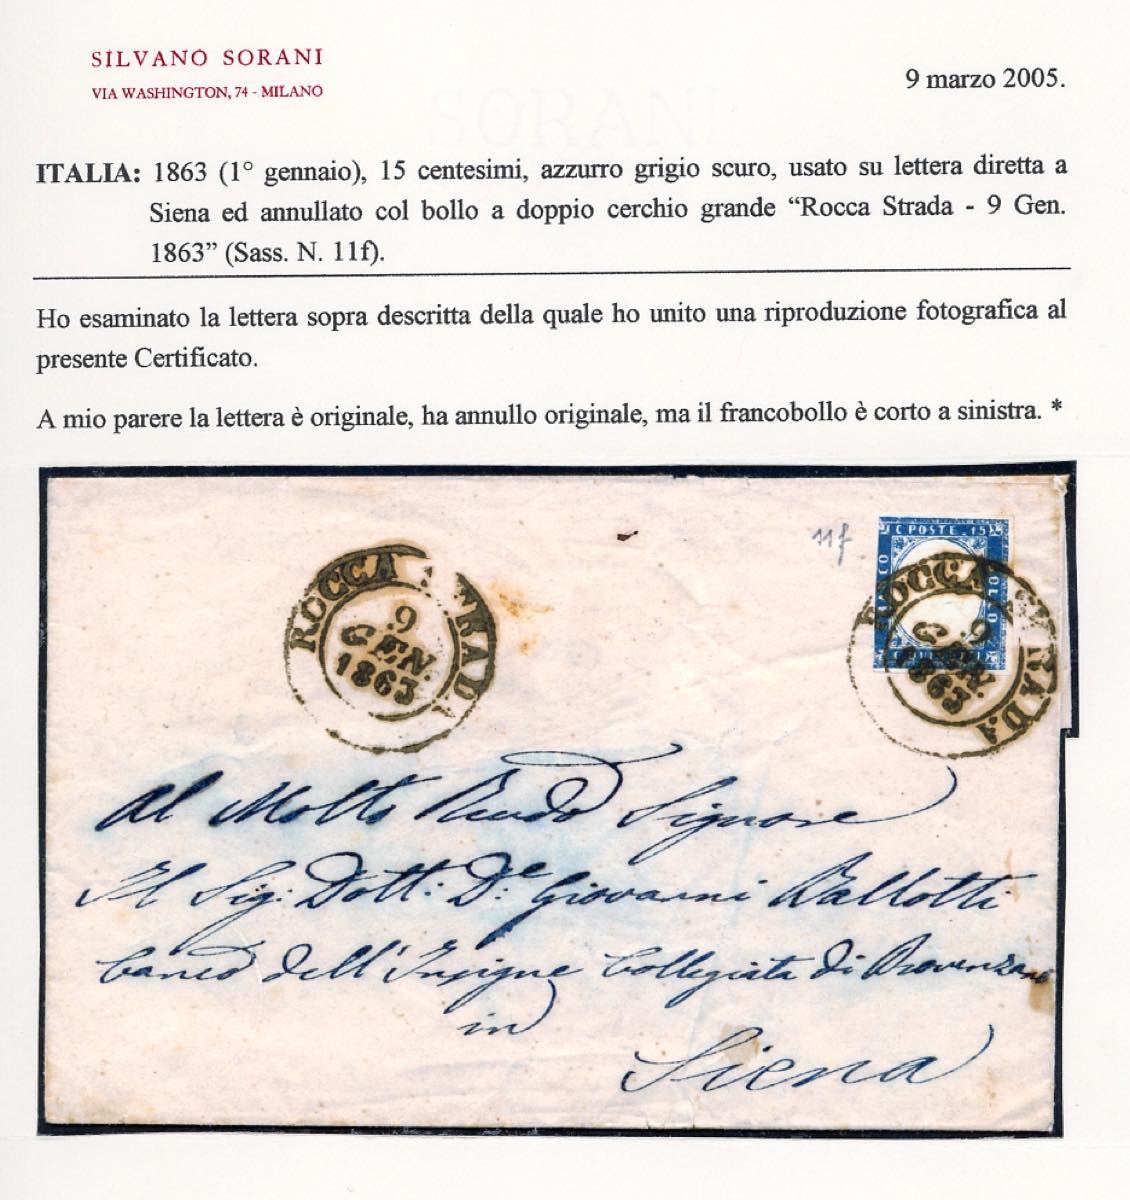 SILVANO SORANI
VIA WASHINGTON, 74 - MILANO
9 marzo 2005.
SORANI
ITALIA: 1863 (1° gennaio), 15 centesimi, azzurro grigio scuro, usato su lettera diretta a
Siena ed annullato col bollo a doppio cerchio grande “Rocca Strada - 9 Gen.
1863” (Sass. N. 11f).
Ho esaminato la lettera sopra descritta della quale ho unito una riproduzione fotografica al
presente Certificato.
A mio parere la lettera è originale, ha annullo originale, ma il francobollo è corto a sinistra. *
11f
C POSTE 15
ROCCA STRADA
9
GEN.
1863
ROCCA STRADA
9
GEN
1863
Al Molto Revdo Signore
Il Sig: Dott: De Giovanni Ballotti
Canco dell'Insigne Collegiata di Provenzano
in
Siena